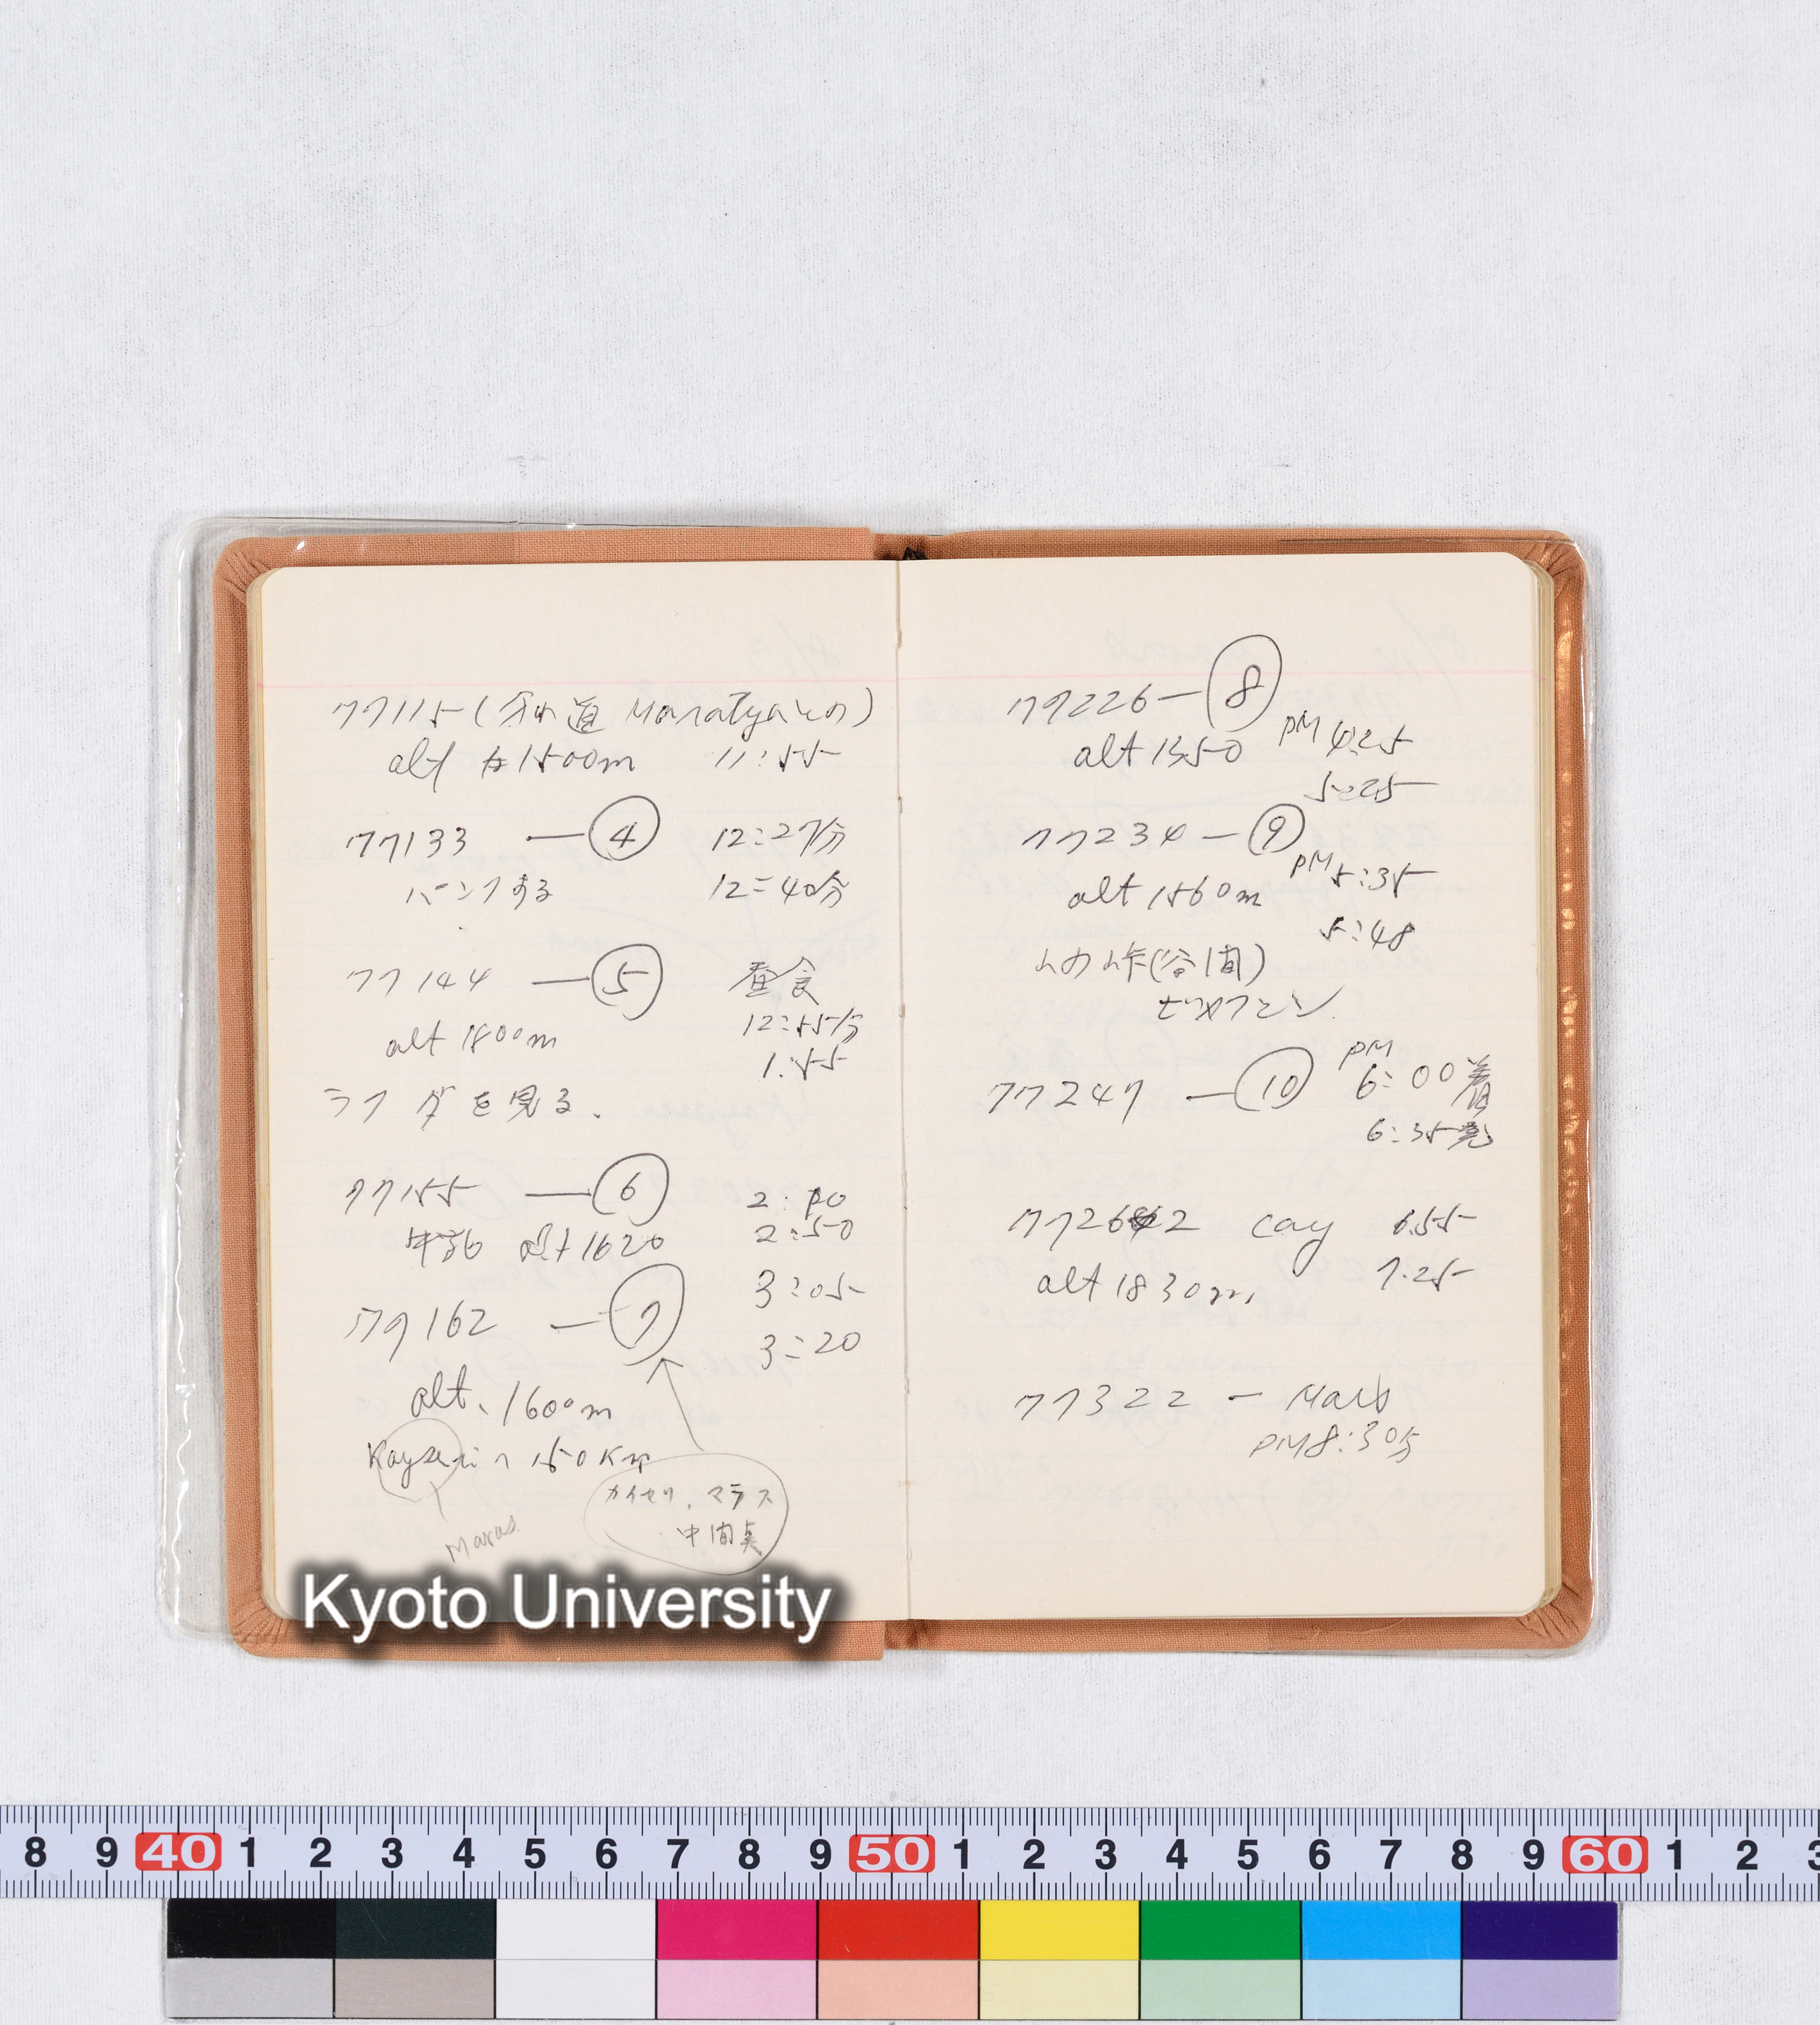 77115 (分れ道 Maratyaとの)
alt 1500m 11:55
77133 — ④ 12:27分
パンクする 12:40分
77144 — ⑤ 昼食
alt 1800m 12:55分
1:55
ラクダを見る.
77155 — ⑥ 2:
alt 1620 2:50
77162 — ⑦ 3:05
3:20
alt. 1600m
Kayseriへ 150Km
カイセリ. マラス
中間点
Maras
77226 — ⑧
alt 1350 PM 4:25
5:25
77234 — ⑨
alt 1560m PM 5:35
5:48
(谷間)
77247 — ⑩ PM 6:00着
6:35発
772662 cay 6.55
alt 1830m. 7.25
77322 — Mars
PM8:30分
Kyoto University
8 9 40 1 2 3 4 5 6 7 8 9 50 1 2 3 4 5 6 7 8 9 60 1 2 3